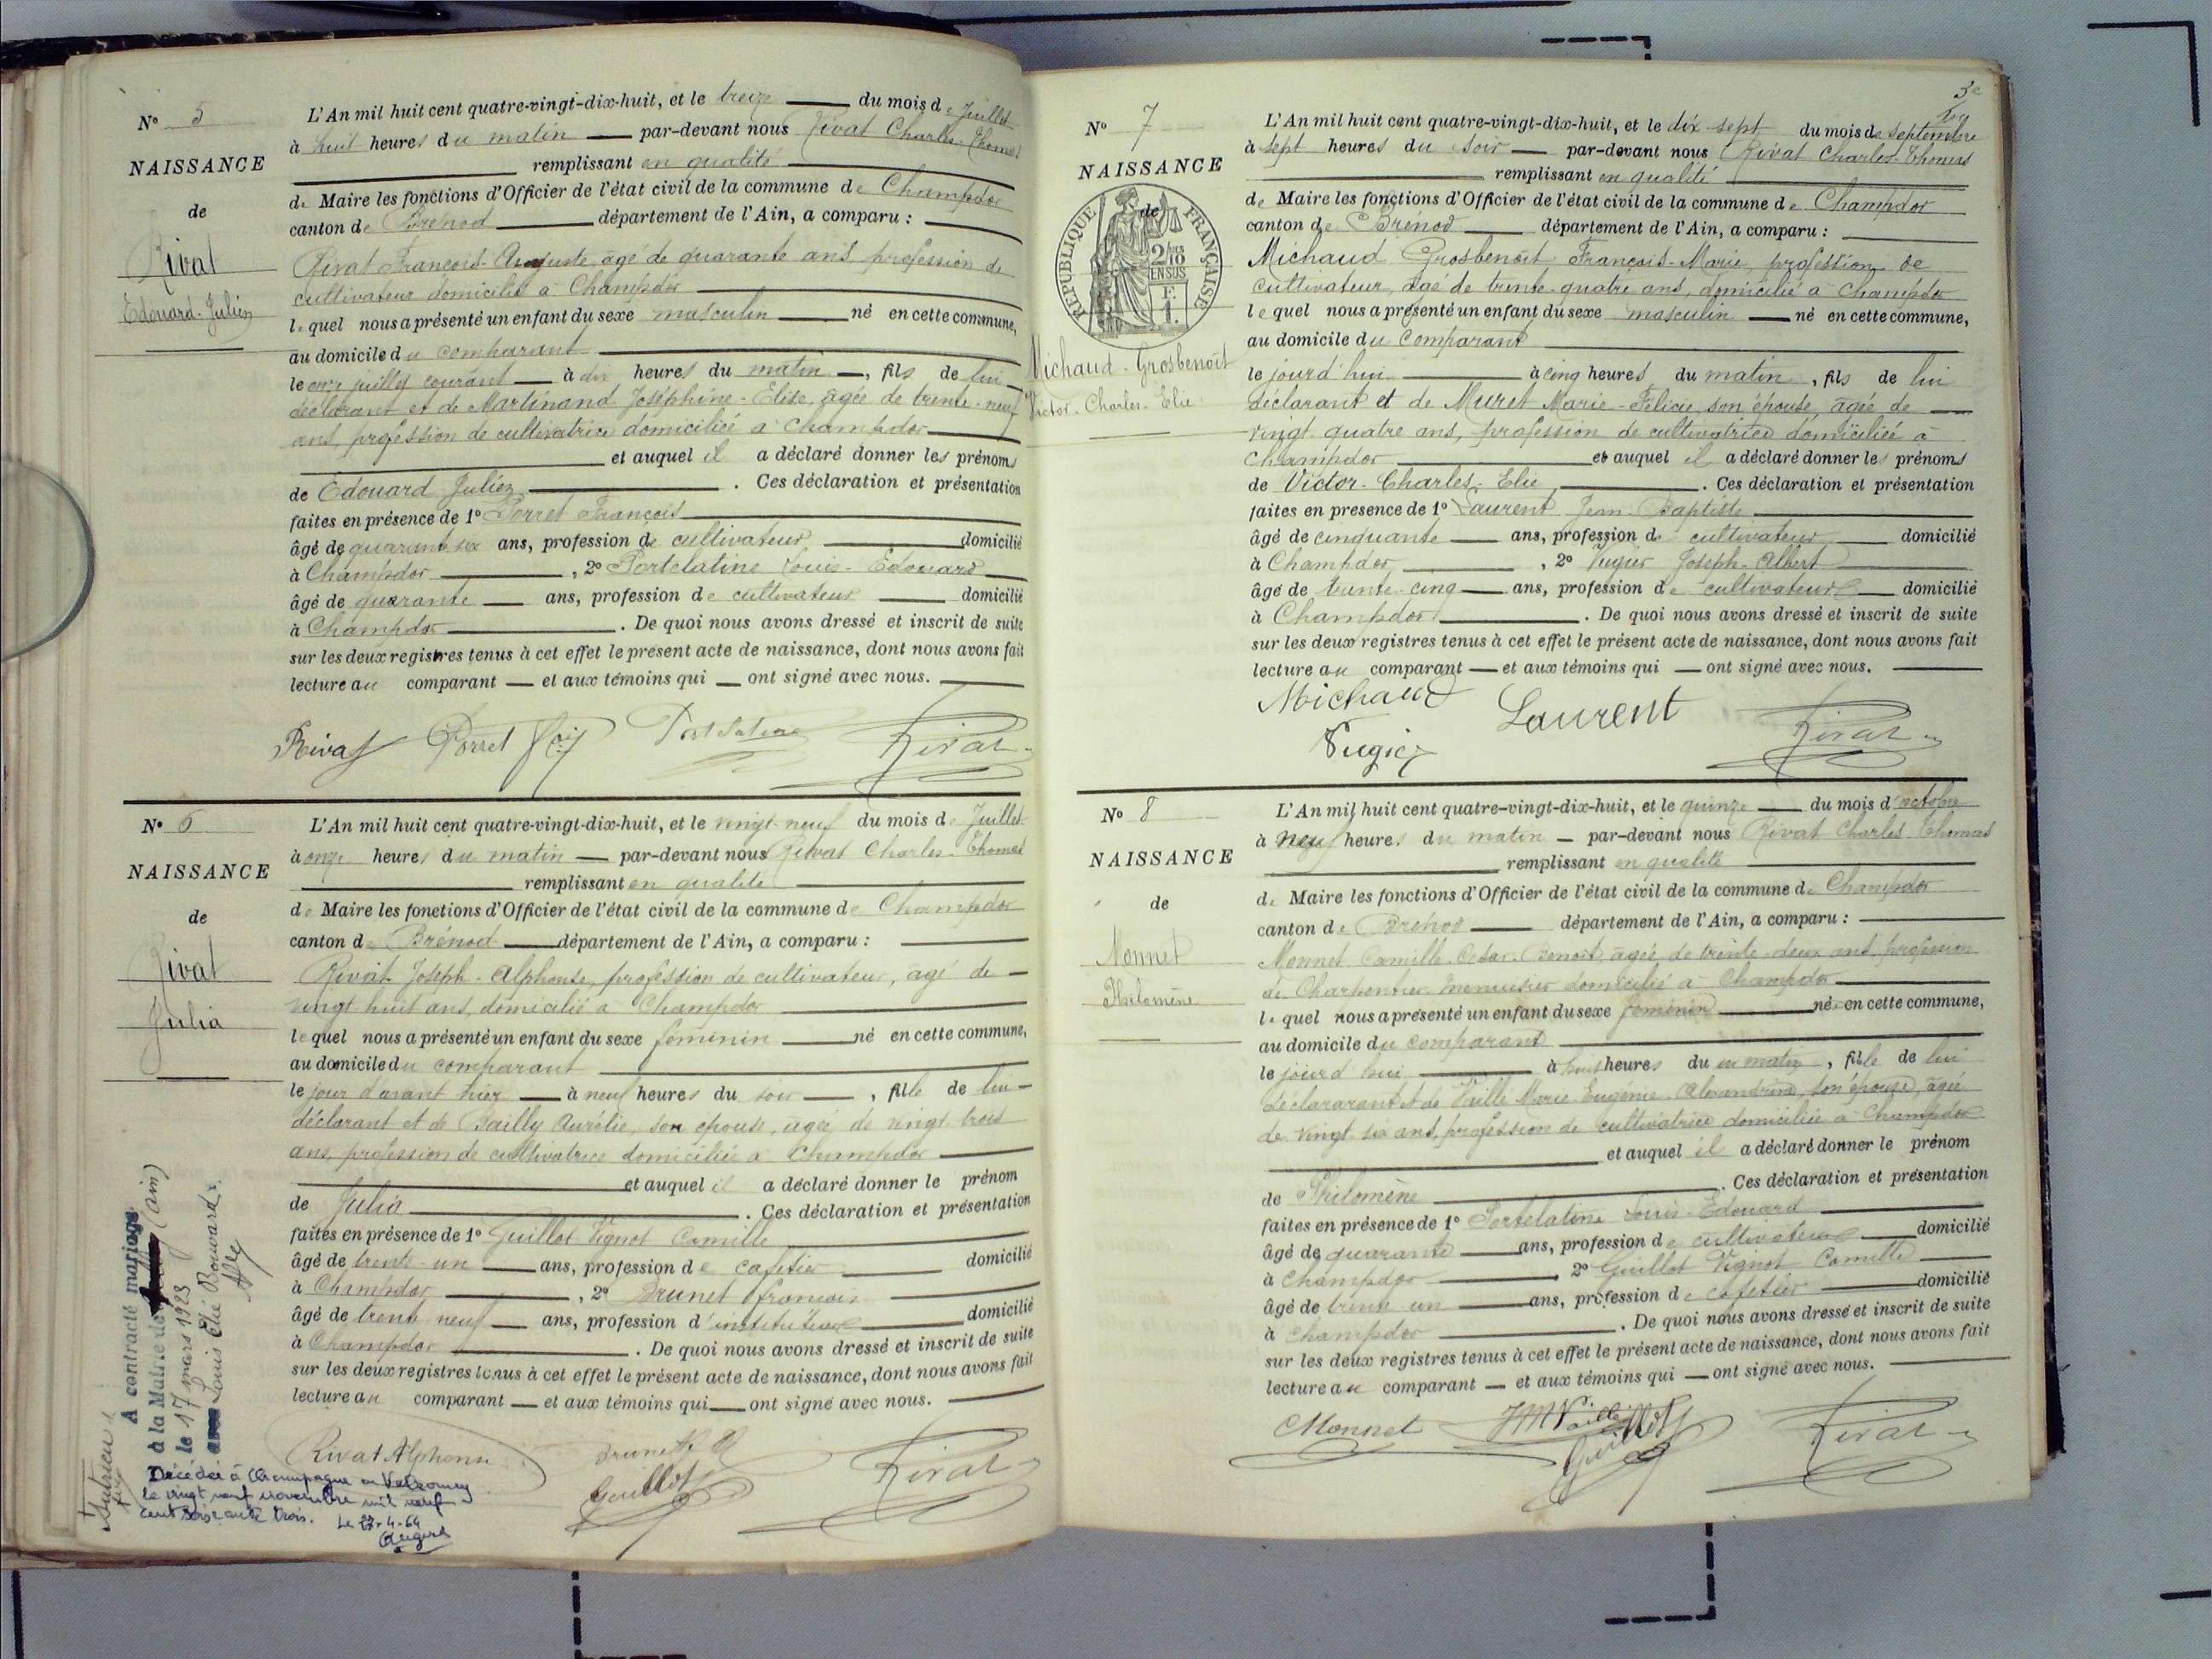 N° 5
NAISSANCE
de
Rival
Edouard-Julien
L'An mil huit cent quatre-vingt-dix-huit, et le treize du mois de Juillet
à huit heures du matin par-devant nous Rivat Charles-Thomas
remplissant en qualité
de Maire les fonctions d'Officier de l'état civil de la commune de Champdor
canton de Brénod département de l'Ain, a comparu :
Rivat François-Auguste, âgé de quarante ans profession de
cultivateur domicilié à Champdor
lequel nous a présenté un enfant du sexe masculin né en cette commune,
au domicile du comparant
le onze juillet courant à dix heures du matin, fils de lui
déclarant et de Martinand Joséphine-Elise, âgée de trente-neuf
ans, profession de cultivatrice domiciliée à Champdor
et auquel il a déclaré donner les prénoms
de Edouard Julien. Ces déclaration et présentation
faites en présence de 1° Porret François
âgé de quarante six ans, profession de cultivateur domicilié
à Champdor, 2° Portelatine Louis-Edouard
âgé de quarante ans, profession de cultivateur domicilié
à Champdor. De quoi nous avons dressé et inscrit de suite
sur les deux registres tenus à cet effet le présent acte de naissance, dont nous avons fait
lecture au comparant et aux témoins qui ont signé avec nous.
Rivat Porret Portelatine Rivat
N° 6
NAISSANCE
de
Rivat
Julia
L'An mil huit cent quatre-vingt-dix-huit, et le vingt-neuf du mois de Juillet
à onze heures du matin par-devant nous Rivat Charles-Thomas
remplissant en qualité
de Maire les fonctions d'Officier de l'état civil de la commune de Champdor
canton de Brénod département de l'Ain, a comparu :
Rivat Joseph-Alphonse, profession de cultivateur, agé de
vingt-huit ans, domicilié à Champdor
lequel nous a présenté un enfant du sexe féminin né en cette commune,
au domicile du comparant
le jour d'avant hier à neuf heures du soir, fille de lui
déclarant et de Bailly Aurélie, son épouse, agée de vingt trois
ans, profession de cultivatrice domiciliée à Champdor
et auquel il a déclaré donner le prénom
de Julia. Ces déclaration et présentation
faites en présence de 1° Guillot Vignot Camille
âgé de trente-un ans, profession de cafetier domicilié
à Champdor, 2° Brunet François
âgé de trente neuf ans, profession d'instituteur domicilié
à Champdor. De quoi nous avons dressé et inscrit de suite
sur les deux registres tenus à cet effet le présent acte de naissance, dont nous avons fait
lecture au comparant et aux témoins qui ont signé avec nous.
Rivat Alphonse Brunet Guillot Rivat
A contracté mariage
à la Mairie de (ain)
le 17 mars 1923
avec Louis Elié Bouvard.
Décédée à Champagne en Valromey
le vingt neuf novembre mil neuf
cent soixante trois. Le 27-4-64
N° 7
NAISSANCE
de
RÉPUBLIQUE FRANÇAISE
2/10 EN SUS
Michaud-Grosbenoît
Victor-Charles-Elie
3e
L'An mil huit cent quatre-vingt-dix-huit, et le dix-sept du mois de septembre
à sept heures du soir par-devant nous Rivat Charles-Thomas
remplissant en qualité
de Maire les fonctions d'Officier de l'état civil de la commune de Champdor
canton de Brénod département de l'Ain, a comparu :
Michaud Grosbenoît François-Marie, profession de
cultivateur, agé de trente-quatre ans, domicilié à Champdor
lequel nous a présenté un enfant du sexe masculin né en cette commune,
au domicile du comparant
le jourd'hui à cinq heures du matin, fils de lui
déclarant et de Muret Marie-Félicie, son épouse, âgée de
vingt-quatre ans, profession de cultivatrice domiciliée à
Champdor et auquel il a déclaré donner les prénoms
de Victor-Charles-Elie. Ces déclaration et présentation
faites en présence de 1° Laurent Jean-Baptiste
âgé de cinquante ans, profession de cultivateur domicilié
à Champdor, 2° Jugier Joseph-Albert
âgé de trente-cinq ans, profession de cultivateur domicilié
à Champdor. De quoi nous avons dressé et inscrit de suite
sur les deux registres tenus à cet effet le présent acte de naissance, dont nous avons fait
lecture au comparant et aux témoins qui ont signé avec nous.
Michaud Laurent Rivat
N° 8
NAISSANCE
de
Monnet
Philomène
L'An mil huit cent quatre-vingt-dix-huit, et le quinze du mois d'octobre
à neuf heures du matin par-devant nous Rivat Charles-Thomas
remplissant en qualité
de Maire les fonctions d'Officier de l'état civil de la commune de Champdor
canton de Brénod département de l'Ain, a comparu :
Monnet Camille-César-Benoît, âgée de trente-deux ans profession
de Charpentier-menuisier domicilié à Champdor
lequel nous a présenté un enfant du sexe féminin née en cette commune,
au domicile du comparant
le jourd'hui à heures du matin, fille de lui
déclararant et de Vaillé Marie-Eugénie-Alexandrine, son épouse, âgée
de vingt six ans, profession de cultivatrice domiciliée à Champdor
et auquel il a déclaré donner le prénom
de Philomène. Ces déclaration et présentation
faites en présence de 1° Portelatine Louis-Edouard
âgé de quarante ans, profession de cultivateur domicilié
à Champdor 2° Guillot Vignot Camille
âgé de trente-un ans, profession de cafetier domicilié
à Champdor. De quoi nous avons dressé et inscrit de suite
sur les deux registres tenus à cet effet le présent acte de naissance, dont nous avons fait
lecture au comparant et aux témoins qui ont signé avec nous.
Monnet Guillot Rivat